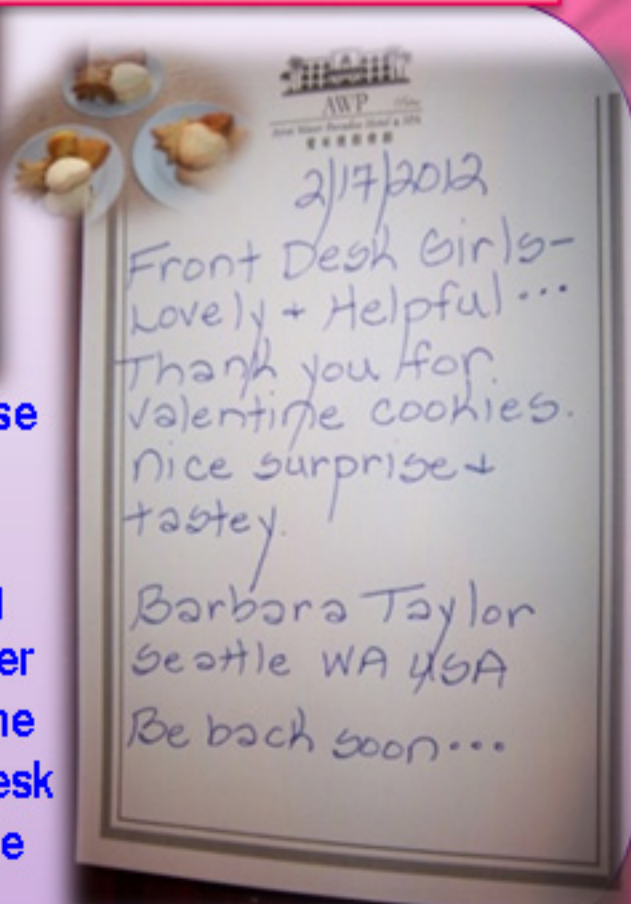 AWP
2/17/2012
Front Desk Girls-
Lovely + Helpful...
Thank you for
Valentine cookies.
nice surprise +
tastey.
Barbara Taylor
Seattle WA USA
Be back soon...
se
er
ne
esk
e